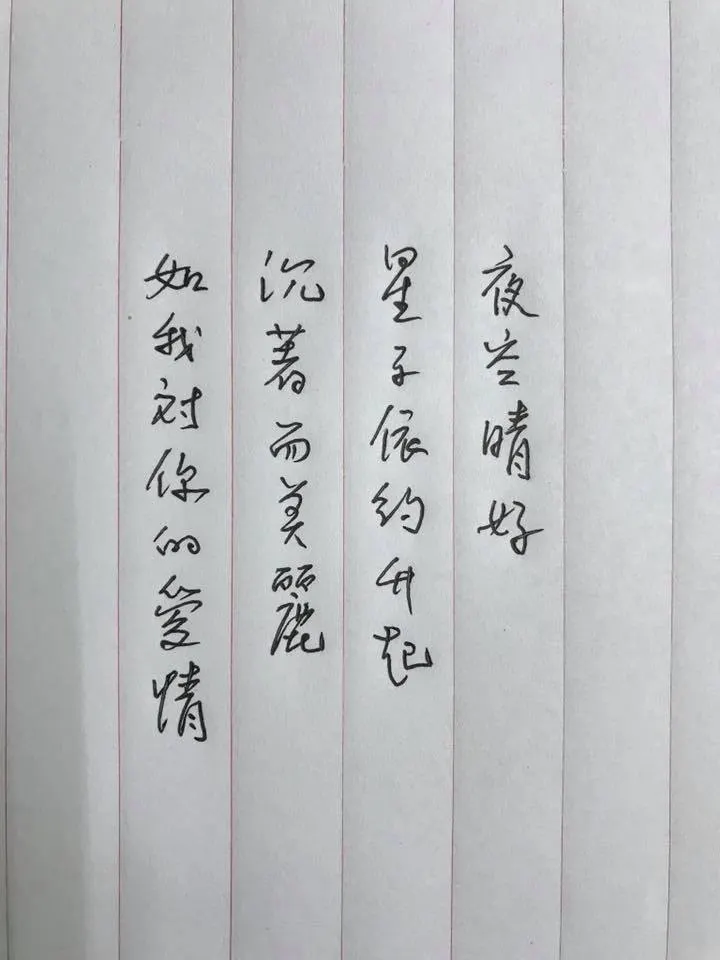 夜空晴好
星子依約升起
沉著而美麗
如我對你的愛情